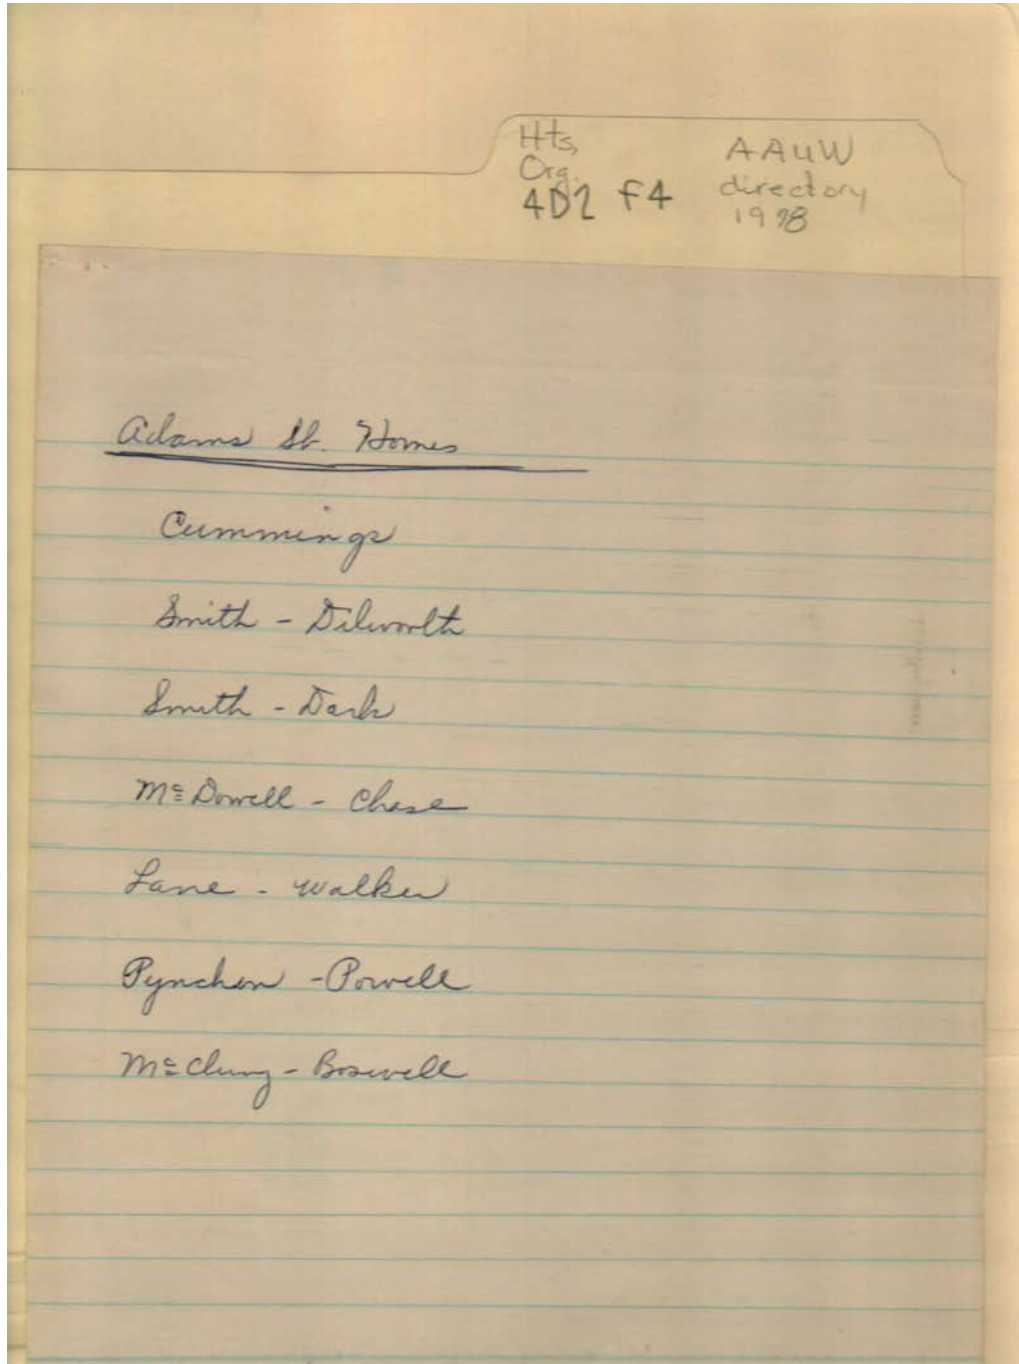 Hts,
Org.
4D2 F4
AAUW
directory
1978
Adams St. Homes
Cummings
Smith - Dilworth
Smith - Dark
McDowell - Chase
Lane - Walker
Pynchon - Powell
McClung - Boswell